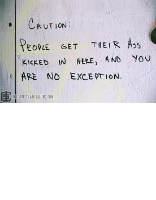 CAUTION:
PEOPLE GET THEIR ASS
KICKED IN HERE, AND YOU
ARE NO EXCEPTION.